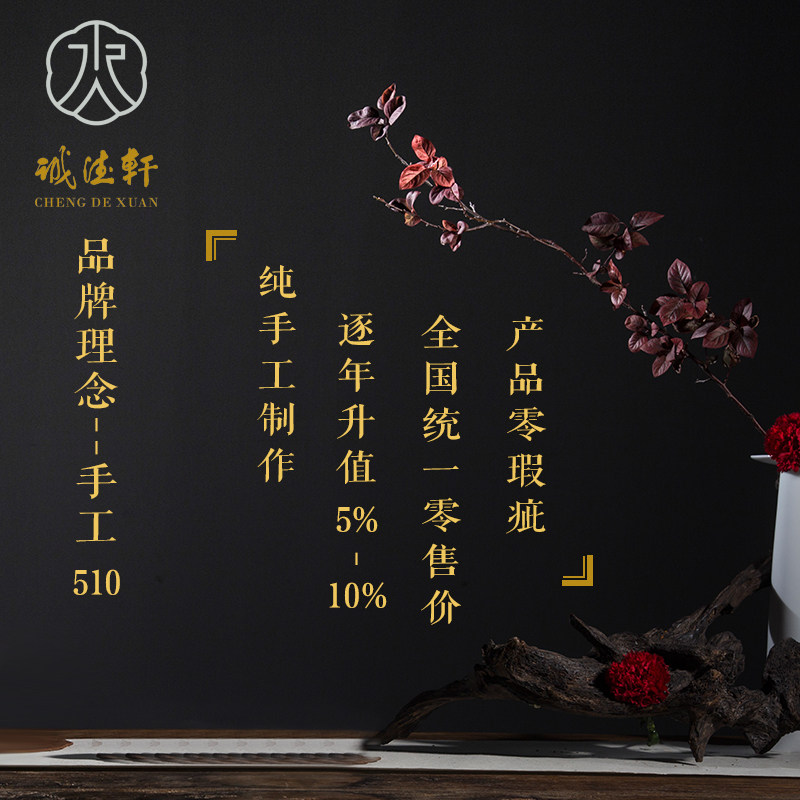 诚德轩
CHENG DE XUAN
品牌理念--手工510
纯手工制作
逐年升值5%-10%
全国统一零售价
产品零瑕疵